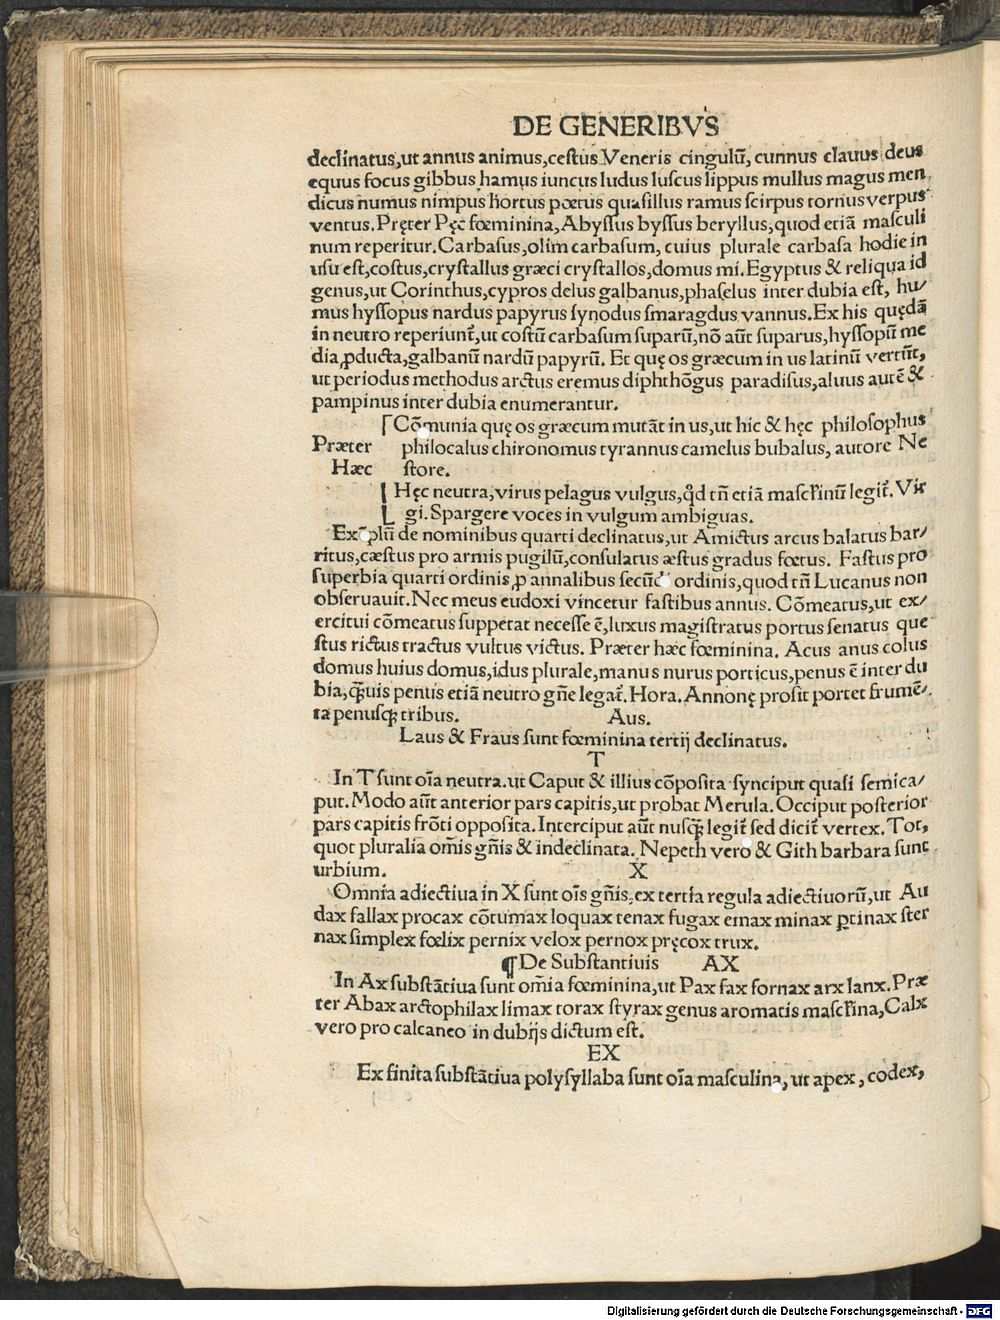 DE GENERIBVS
declinatus,ut annus animus,cestus Veneris cingulũ, cunnus clauus deus
equus focus gibbus hamus iuncus ludus luscus lippus mullus magus men
dicus numus nimpus hortus poetus quasillus ramus scirpus tornus verpus
ventus.Pręter Pęc fœminina,Abyssus byssus beryllus,quod etiã masculi
num reperitur.Carbasus,olim carbasum, cuius plurale carbasa hodie in
usu est,costus,crystallus græci crystallos,domus mi.Egyptus & reliqua id
genus,ut Corinthus,cypros delus galbanus,phaselus inter dubia est, hu/
mus hyssopus nardus papyrus synodus smaragdus vannus.Ex his quędã
in neutro reperiunt̃,ut costũ carbasum suparũ,nõ aũt suparus,hyssopũ me
dia,ꝓducta,galbanũ nardũ papyrũ. Et quę os græcum in us latinũ vertũt,
ut periodus methodus arctus eremus diphthõgus paradisus,aluus autẽ &
pampinus inter dubia enumerantur.
Cõmunia quę os græcum mutãt in us,ut hic & hęc philosophus
Præter philocalus chironomus tyrannus camelus bubalus, autore Ne
Hæc store.
Hęc neutra,virus pelagus vulgus,q̃d tñ etiã mascľinũ legit̃. Vir
gi. Spargere voces in vulgum ambiguas.
plũ de nominibus quarti declinatus,ut Amictus arcus balatus bar/
ritus,cæstus pro armis pugilũ,consulatus æstus gradus fœtus. Fastus pro
superbia quarti ordinis,ꝓ annalibus ordinis,quod tñ Lucanus non
obseruauit.Nec meus eudoxi vincetur fastibus annus. Cõmeatus,ut ex/
ercitui cõmeatus suppetat necesse ẽ,luxus magistratus portus senatus que
stus rictus tractus vultus victus. Præter hæc fœminina. Acus anus colus
domus huius domus,idus plurale,manus nurus porticus,penus ẽ inter du
bia,q̃uis penus etiã neutro gñe legat̃. Hora. Annonę prosit portet frumẽ/
ta penusq; tribus. Aus.
Laus & Fraus sunt fœminina tertij declinatus.
T
In T sunt oĩa neutra.ut Caput & illius cõposita synciput quasi semica/
put.Modo aũt anterior pars capitis,ut probat Merula.Occiput posterior
pars capitis frõti opposita.Interciput aũt nusq̃ legit̃ sed dicit̃ vertex. Tot,
quot pluralia om̃is gñis & indeclinata. Nepeth vero & Gith barbara sunt
urbium. X
Omnia adiectiua in X sunt oĩs gñis,ex tertia regula adiectiuorũ,ut Au
dax fallax procax cõtumax loquax tenax fugax emax minax ꝑtinax ster
nax simplex fœlix pernix velox pernox pręcox trux.
¶ De Substantiuis AX
In Ax substãtiua sunt om̃ia fœminina,ut Pax fax fornax arx lanx. Præ
ter Abax arctophilax limax torax styrax genus aromatis mascľina,Calx
vero pro calcaneo in dubijs dictum est.
EX
Ex finita substãtiua polysyllaba sunt oĩa masculina, ut apex, codex,
Digitalisierung gefördert durch die Deutsche Forschungsgemeinschaft - DFG